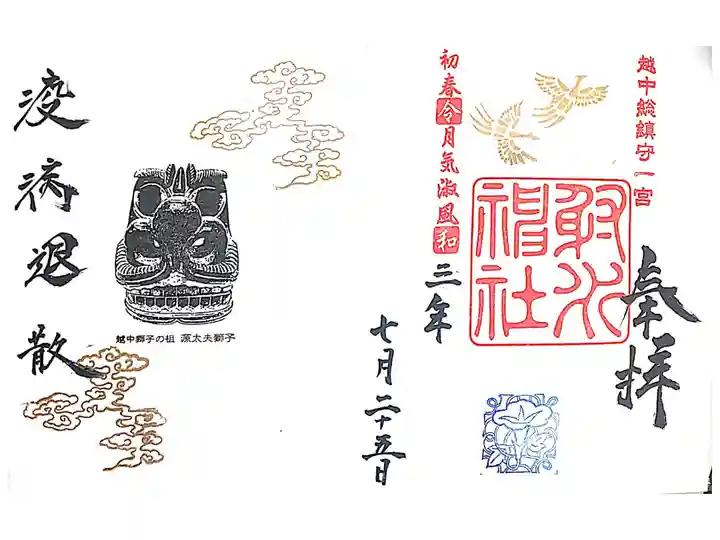 越中総鎮守一宮
奉拝
射水神社
初春令月気淑風和
三年
七月二十五日
越中獅子の祖 源太夫獅子
疫病退散